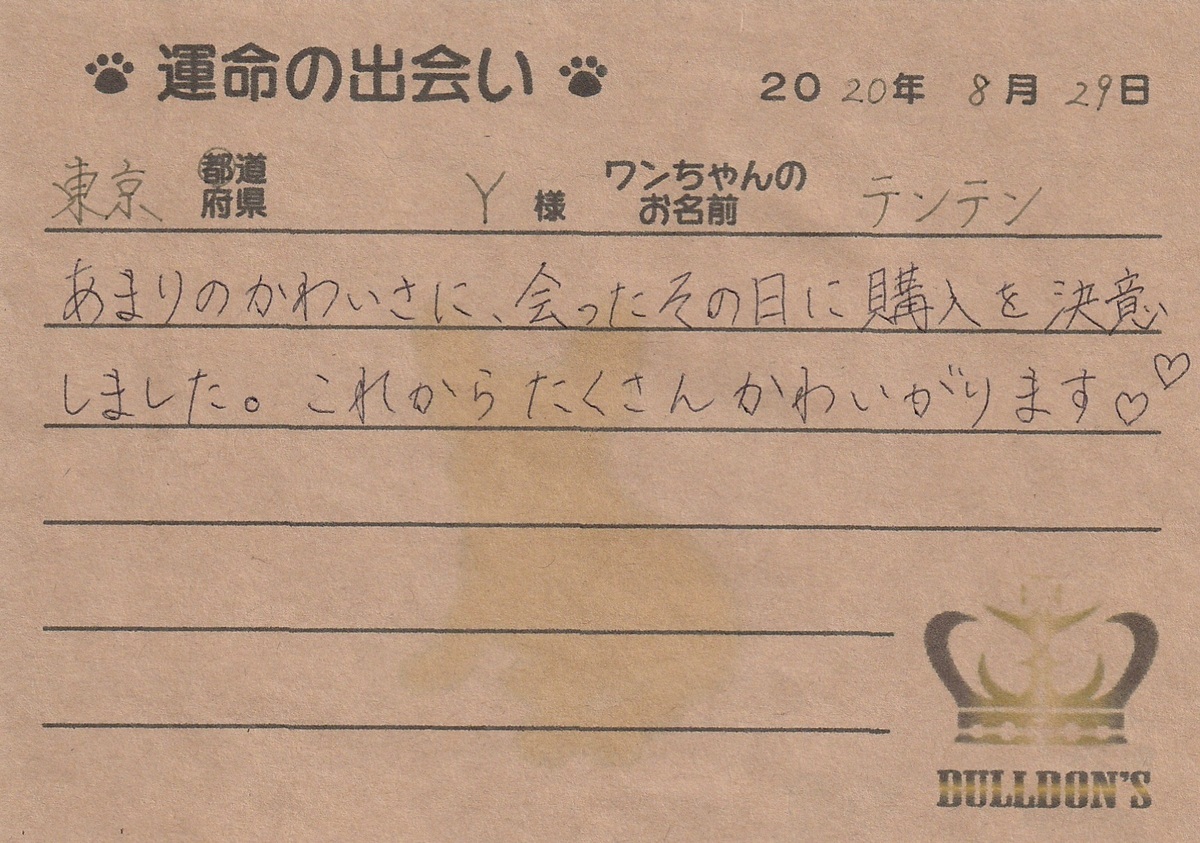 運命の出会い 2020年 8月 29日
東京 都道府県 Y 様 ワンちゃんのお名前 テンテン
あまりのかわいさに、会ったその日に購入を決意
しました。これからたくさんかわいがります♡♡
BULLDON'S